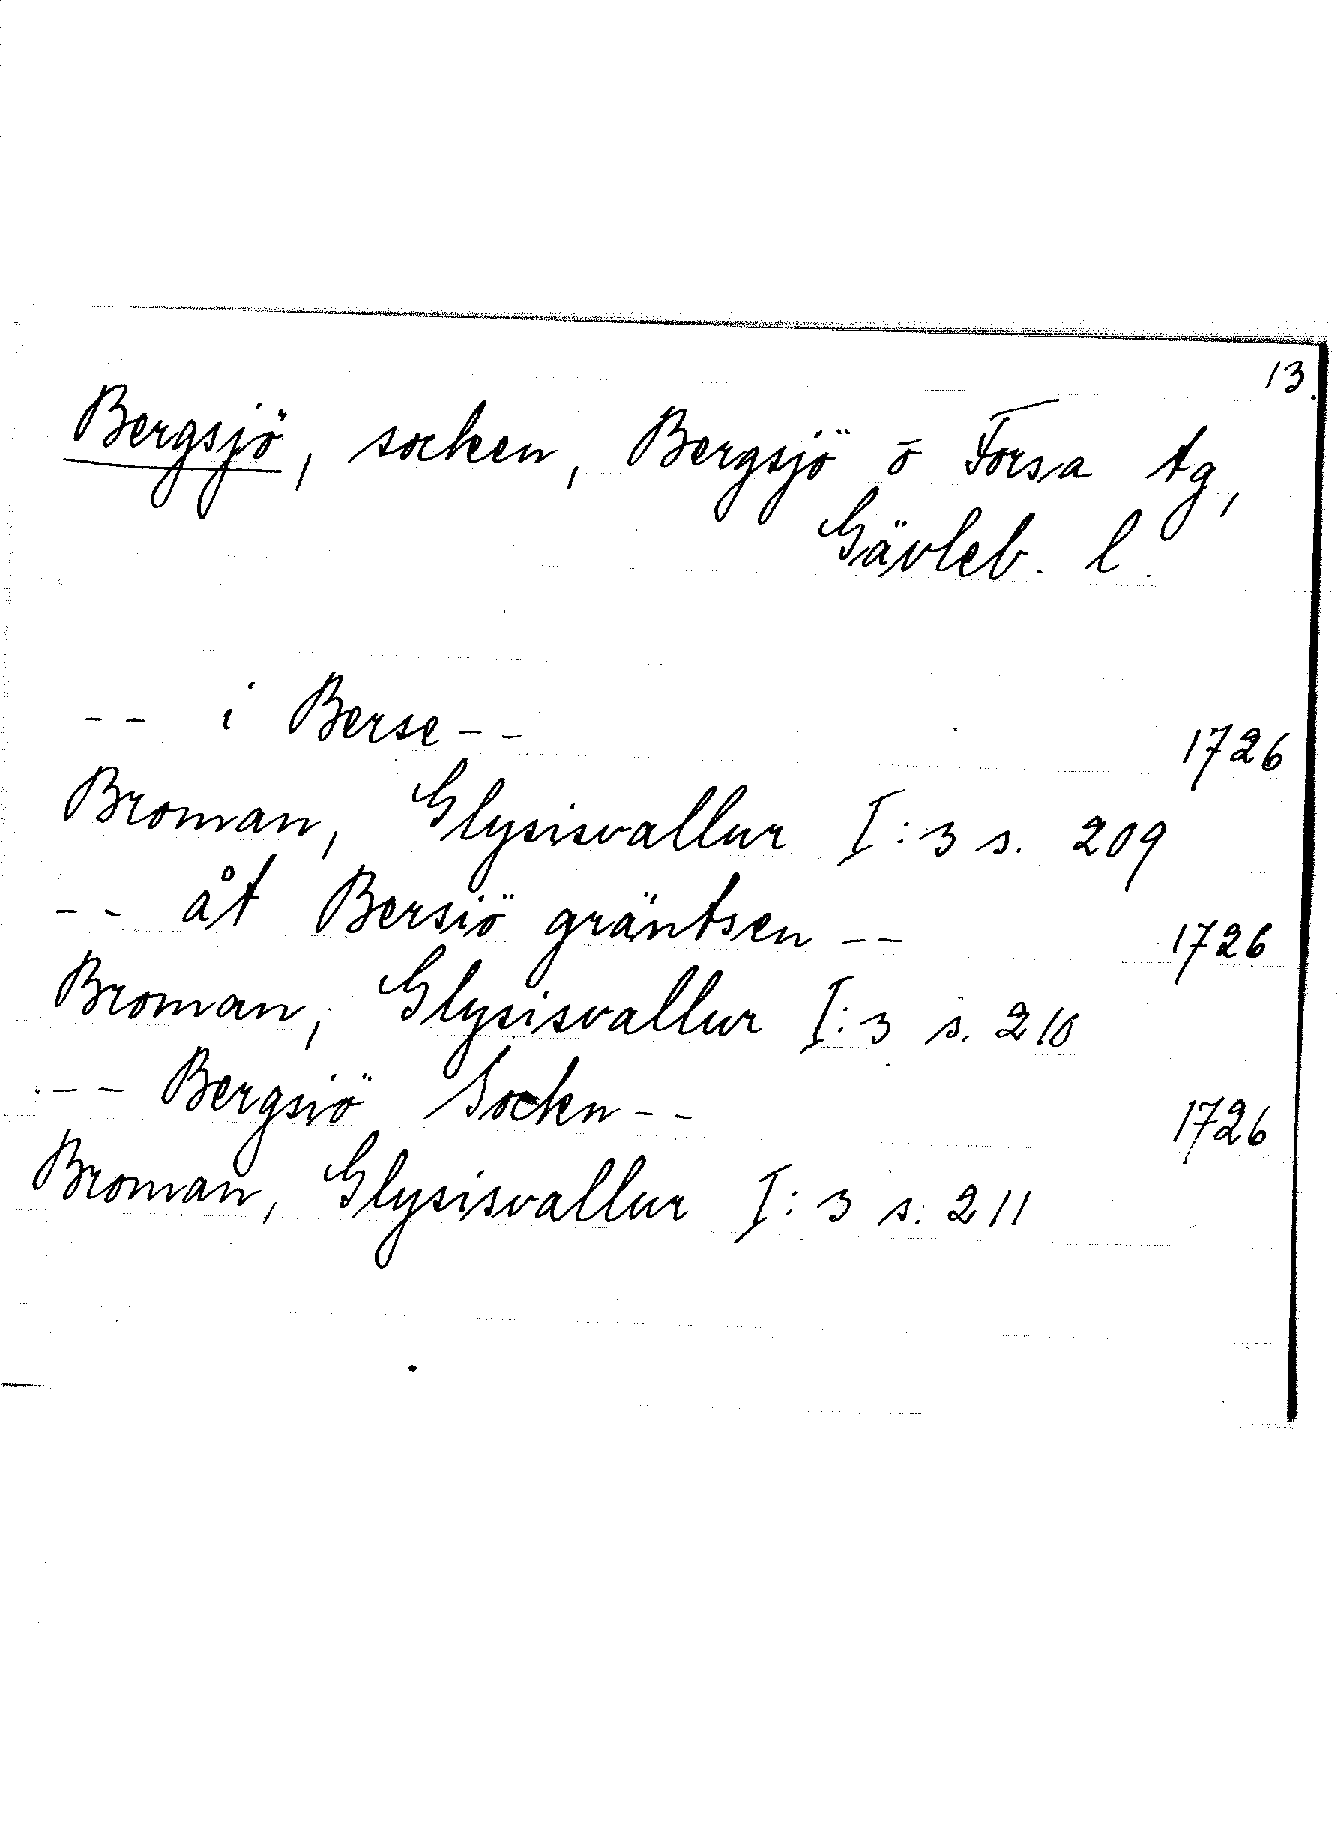 13.
Bergsjö, socken, Bergsjö o Forsa tg,
Gävleb. l.
-- i Berse --
1726
Broman, Glysisvallur I:3 s. 209
-- åt Bersiö gräntsen --
1726
Broman, Glysisvallur I:3 s. 210
-- Bergsiö Sockn --
1726
Broman, Glysisvallur I:3 s. 211